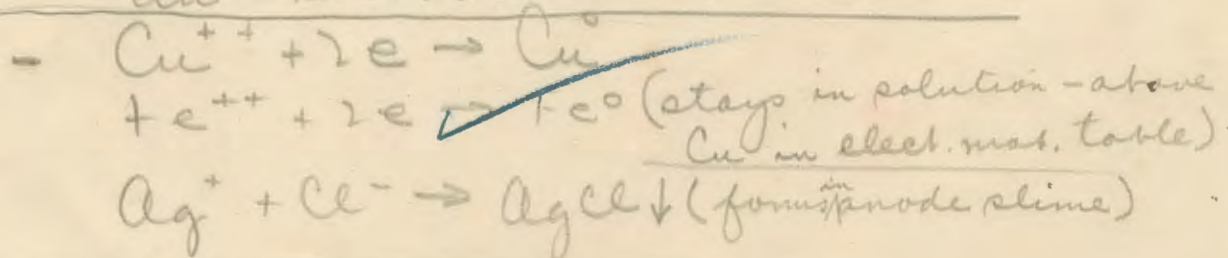 - Cu++ + 2e → Cu°
Fe++ + 2e → Fe° (stays in solution - above
Cu in elect. mot. table)
Ag+ + Cl- → AgCl↓ (forms in anode slime)